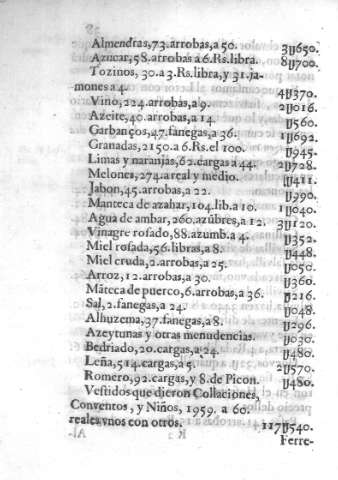 Almendras, 73. arrobas, a 50. 3ɥ650.
Azucar, 58. arrobas a 6. Rs. libra. 8ɥ700.
Tozinos, 30. a 3. Rs. libra, y 31. ja-
mones a 4. 4ɥ370.
Vino, 224. arrobas, a 9. 2ɥ016.
Azeite, 40. arrobas, a 14. ɥ560.
Garbanços, 47. fanegas, a 36. 1ɥ692.
Granadas, 2150. a 6. Rs. el 100. ɥ945.
Limas y naranjas, 62. cargas a 44. 2ɥ728.
Melones, 274. a real y medio. ɥ411.
Jabon, 45. arrobas, a 22. ɥ990.
Manteca de azahar, 104. lib. a 10. 1ɥ040.
Agua de ambar, 260. azũbres, a 12. 3ɥ120.
Vinagre rosado, 88. azumb. a 4. ɥ352.
Miel rosada, 56. libras, a 8. ɥ448.
Miel cruda, 2. arrobas, a 25. ɥ050.
Arroz, 12. arrobas, a 30. ɥ360.
Mãteca de puerco, 6. arrobas, a 36. ɥ216.
Sal, 2. fanegas, a 24. ɥ048.
Alhuzema, 37. fanegas, a 8. ɥ296.
Azeytunas y otras menudencias. ɥ030.
Bedriado, 20. cargas, a 24. ɥ480.
Leña, 514. cargas, a 5. 2ɥ570.
Romero, 92. cargas, y 8. de Picon. ɥ480.
Vestidos que dieron Collaciones,
Conventos, y Niños, 1959. a 60.
reales vnos con otros. 117ɥ540.
Ferre-